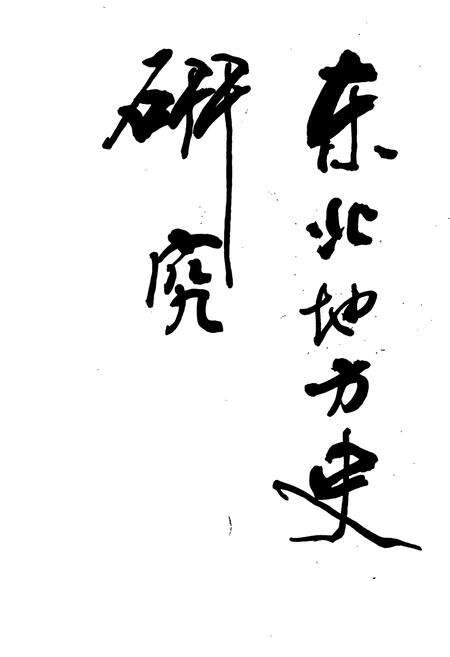 东北地方史
研究